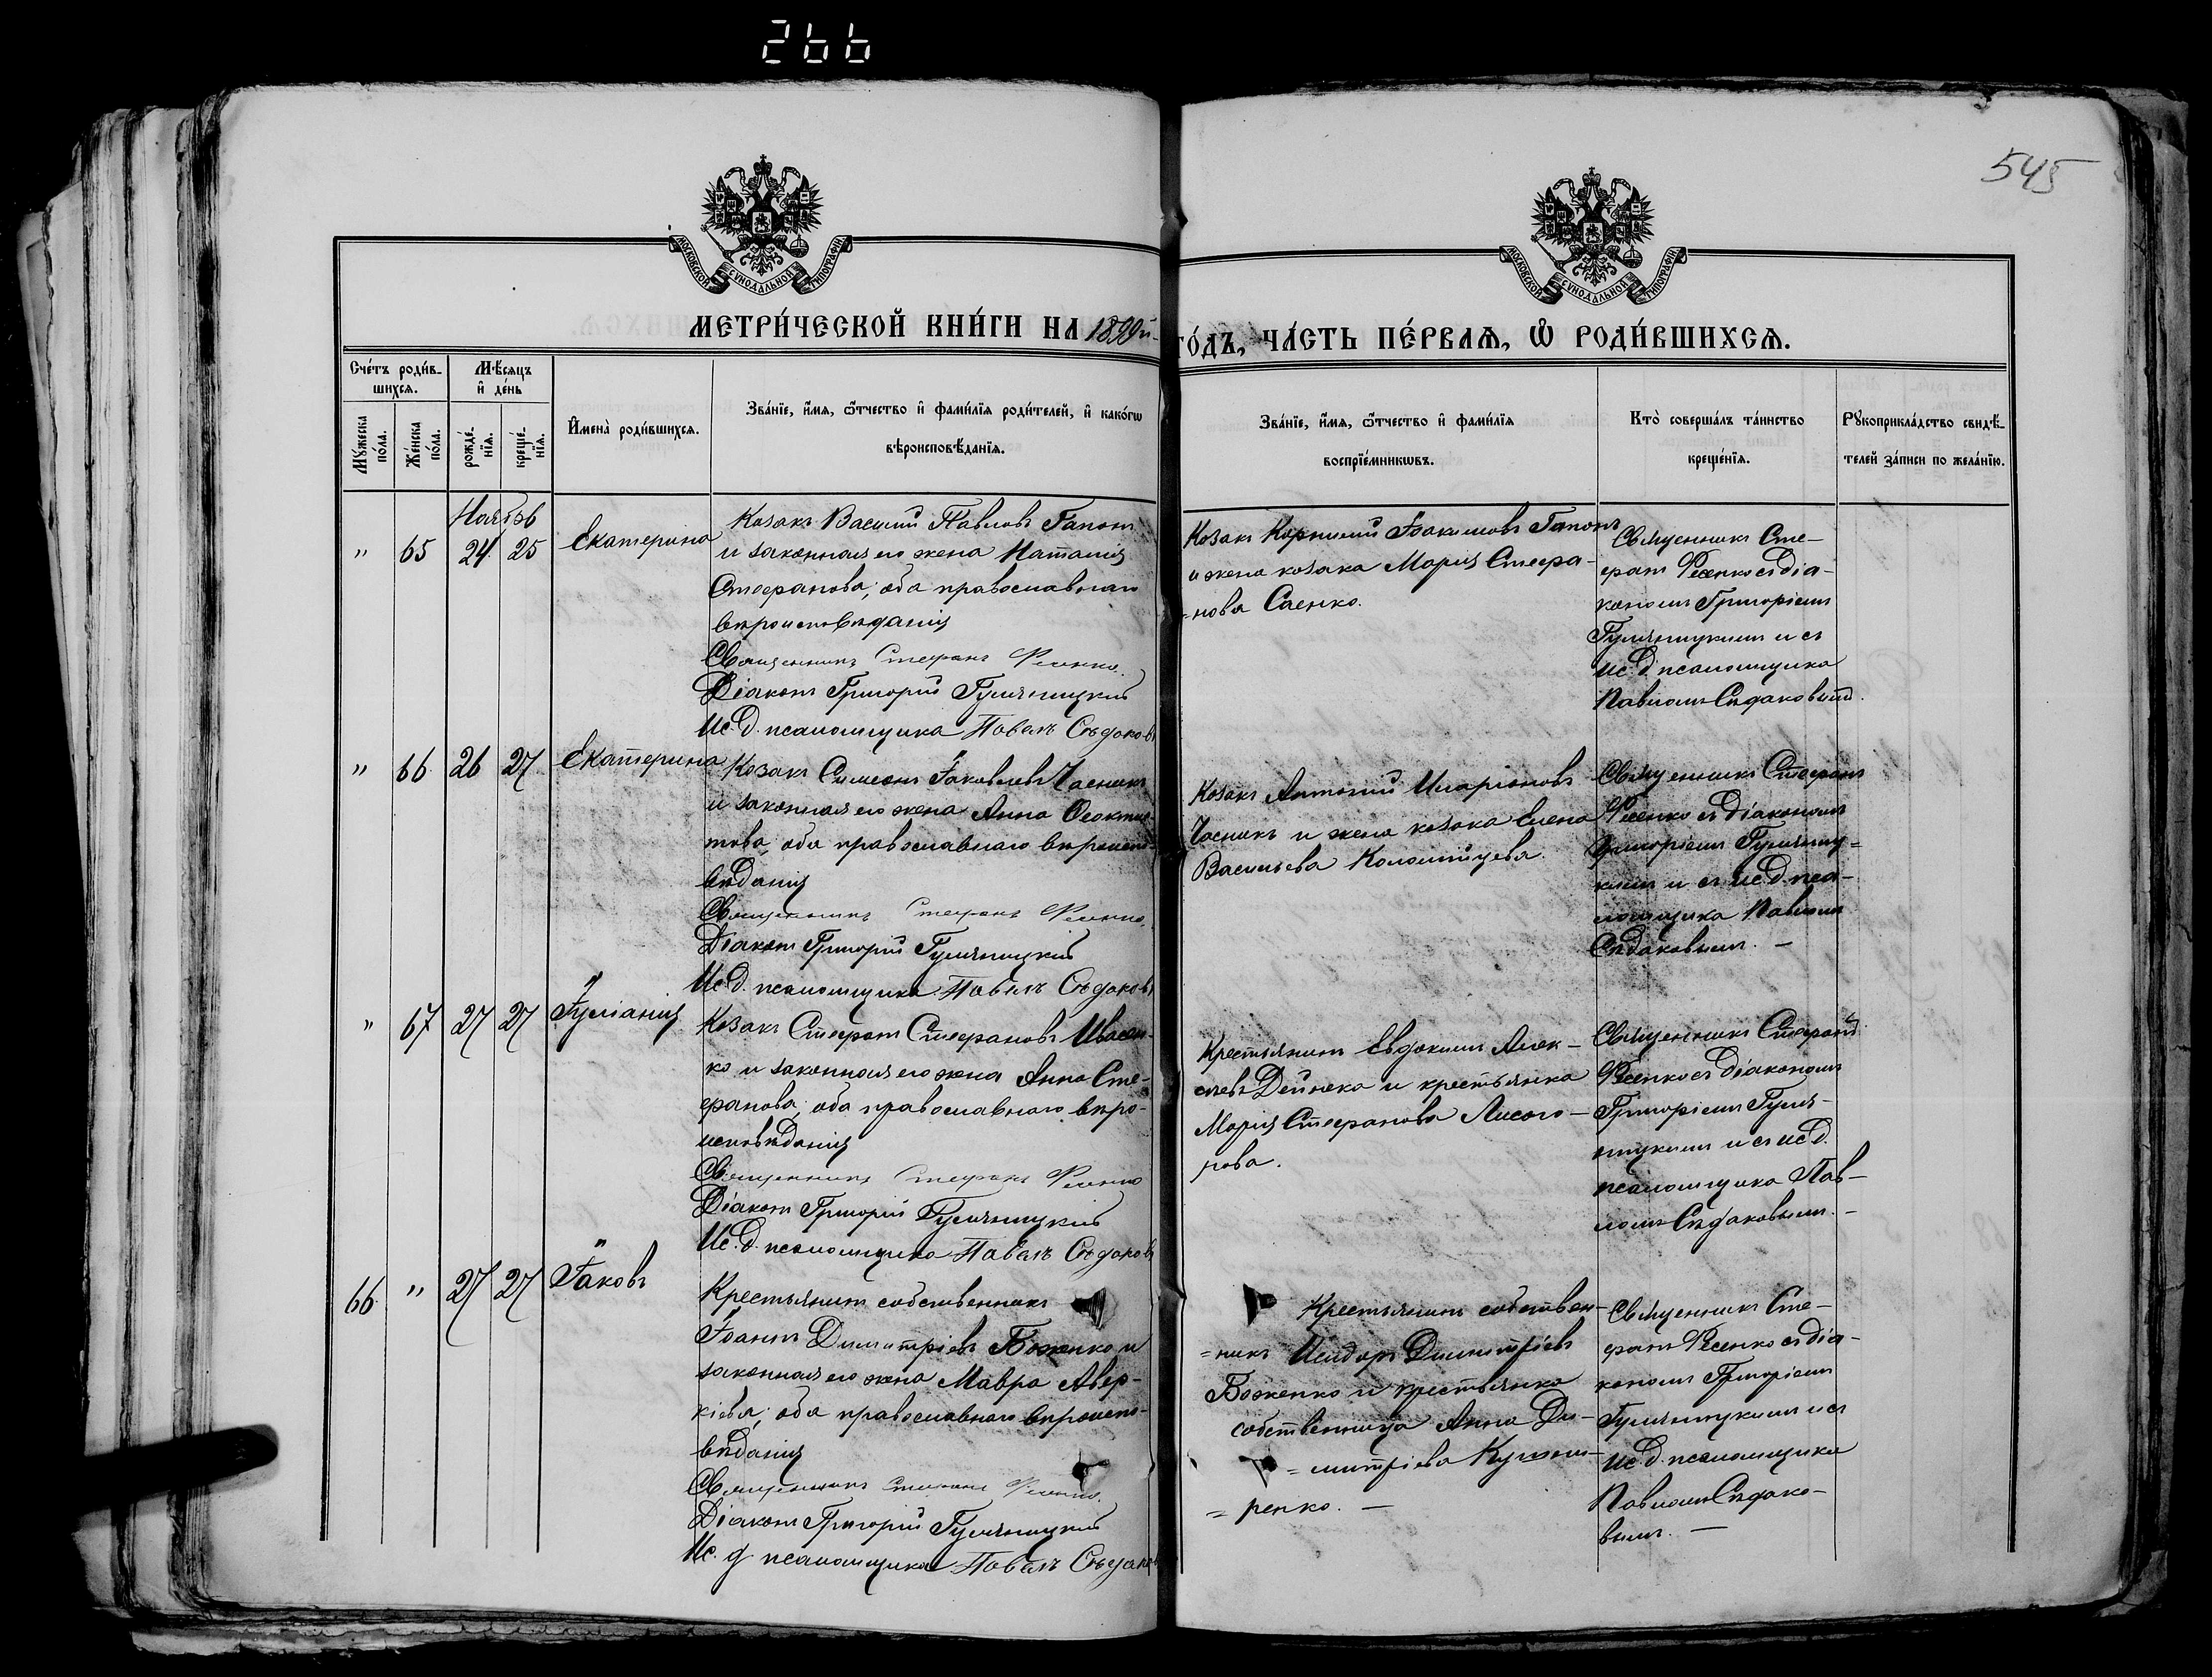 266
545
МОСКОВСКОЙ СѴНОДАЛЬНОЙ ТИПОГРАФІИ
МОСКОВСКОЙ СѴНОДАЛЬНОЙ ТИПОГРАФІИ
МЕТРИ́ЧЕСКОЙ КНИ́ГИ НА 1899й
ГО́ДЪ, ЧА́СТЬ ПЕ́РВАѦ, Ѡ҆ РОДИ́ВШИХСѦ.
Сче́тъ роди́в-
шихсѧ.
Мѣ́сѧцъ
и҆ де́нь
Мꙋ́жеска по́ла.
Же́нска по́ла.
рожде́-нїѧ.
креще́-нїѧ.
И҆мена̀ роди́вшихсѧ.
Зва́нїе, и҆́мѧ, ѻ҆́тчество и҆ фами́лїѧ роди́телей, и҆ како́гѡ
вѣроисповѣ́данїѧ.
Зва́нїе, и҆́мѧ, ѻ҆́тчество и҆ фами́лїѧ
воспрїе́мникѡвъ.
Кто̀ соверша́лъ та́инство
креще́нїѧ.
Рꙋкоприкла́дство свидѣ́-
телей за́писи по жела́нїю.
Ноябрь
" 65 24 25 Екатерина
Козакъ Василій Павловъ Гапонъ
и законная его жена Наталія
Стефанова, оба православнаго
вѣроисповѣданія
Священникъ Стефанъ Фесенко.
Діаконъ Григорій Гуляницкій
Ис. д. псаломщика Павелъ Сѣдаковъ
Козакъ Корнилій Іоакимовъ Гапонъ
и жена козака Марія Стефа-
=нова Саенко.
Священникъ Сте-
фанъ Фесенко съ діа-
кономъ Григоріемъ
Гуляницкимъ и съ
ис. д. псаломщика
Павломъ Сѣдаковымъ.
" 66 26 27 Екатерина
Козакъ Симеонъ Іаковлевъ Часникъ
и законная его жена Анна Феоктис-
това, оба православнаго вѣроиспо-
вѣданія
Священникъ Стефанъ Фесенко.
Діаконъ Григорій Гуляницкій
Ис. д. псаломщика Павелъ Сѣдаковъ
Козакъ Антоній Иларіоновъ
Часникъ и жена козака Елена
Васильева Коломійцева.
Священникъ Стефанъ
Фесенко съ діакономъ
Григоріемъ Гуляниц=
кимъ и съ ис. д. пса-
ломщика Павломъ
Сѣдаковымъ. —
" 67 27 27 Іуліанія
Козакъ Стефанъ Стефановъ Ивасен-
ко и законная его жена Анна Сте-
фанова, оба православнаго вѣро-
исповѣданія
Священникъ Стефанъ Фесенко
Діаконъ Григорій Гуляницкій
Ис. д. псаломщика Павелъ Сѣдаковъ
Крестьянинъ Евдокимъ Алек-
сѣевъ Дейнека и крестьянка
Марія Стефанова Лисого-
рова.
Священникъ Стефанъ
Фесенко съ діакономъ
Григоріемъ Гуля-
ницкимъ и съ ис. д.
псаломщика Пав-
ломъ Сѣдаковымъ. —
66 " 27 27 Іаковъ
Крестьянинъ собственникъ
Іоаннъ Димитріевъ Боженко и
законная его жена Мавра Авер-
кіева, оба православнаго вѣроиспо-
вѣданія
Священникъ Стефанъ Фесенко.
Діаконъ Григорій Гуляницкій
Ис. д. псаломщика Павелъ Сѣдаков
Крестьянинъ собствен-
=никъ Исидоръ Димитріевъ
Боженко и крестьянка
собственница Анна Ди-
=митріева
=ренко. —
Священникъ Сте-
фанъ Фесенко съ діа-
кономъ Григоріемъ
Гуляницкимъ и съ
ис. д. псаломщика
Павломъ Сѣдако-
вымъ. —